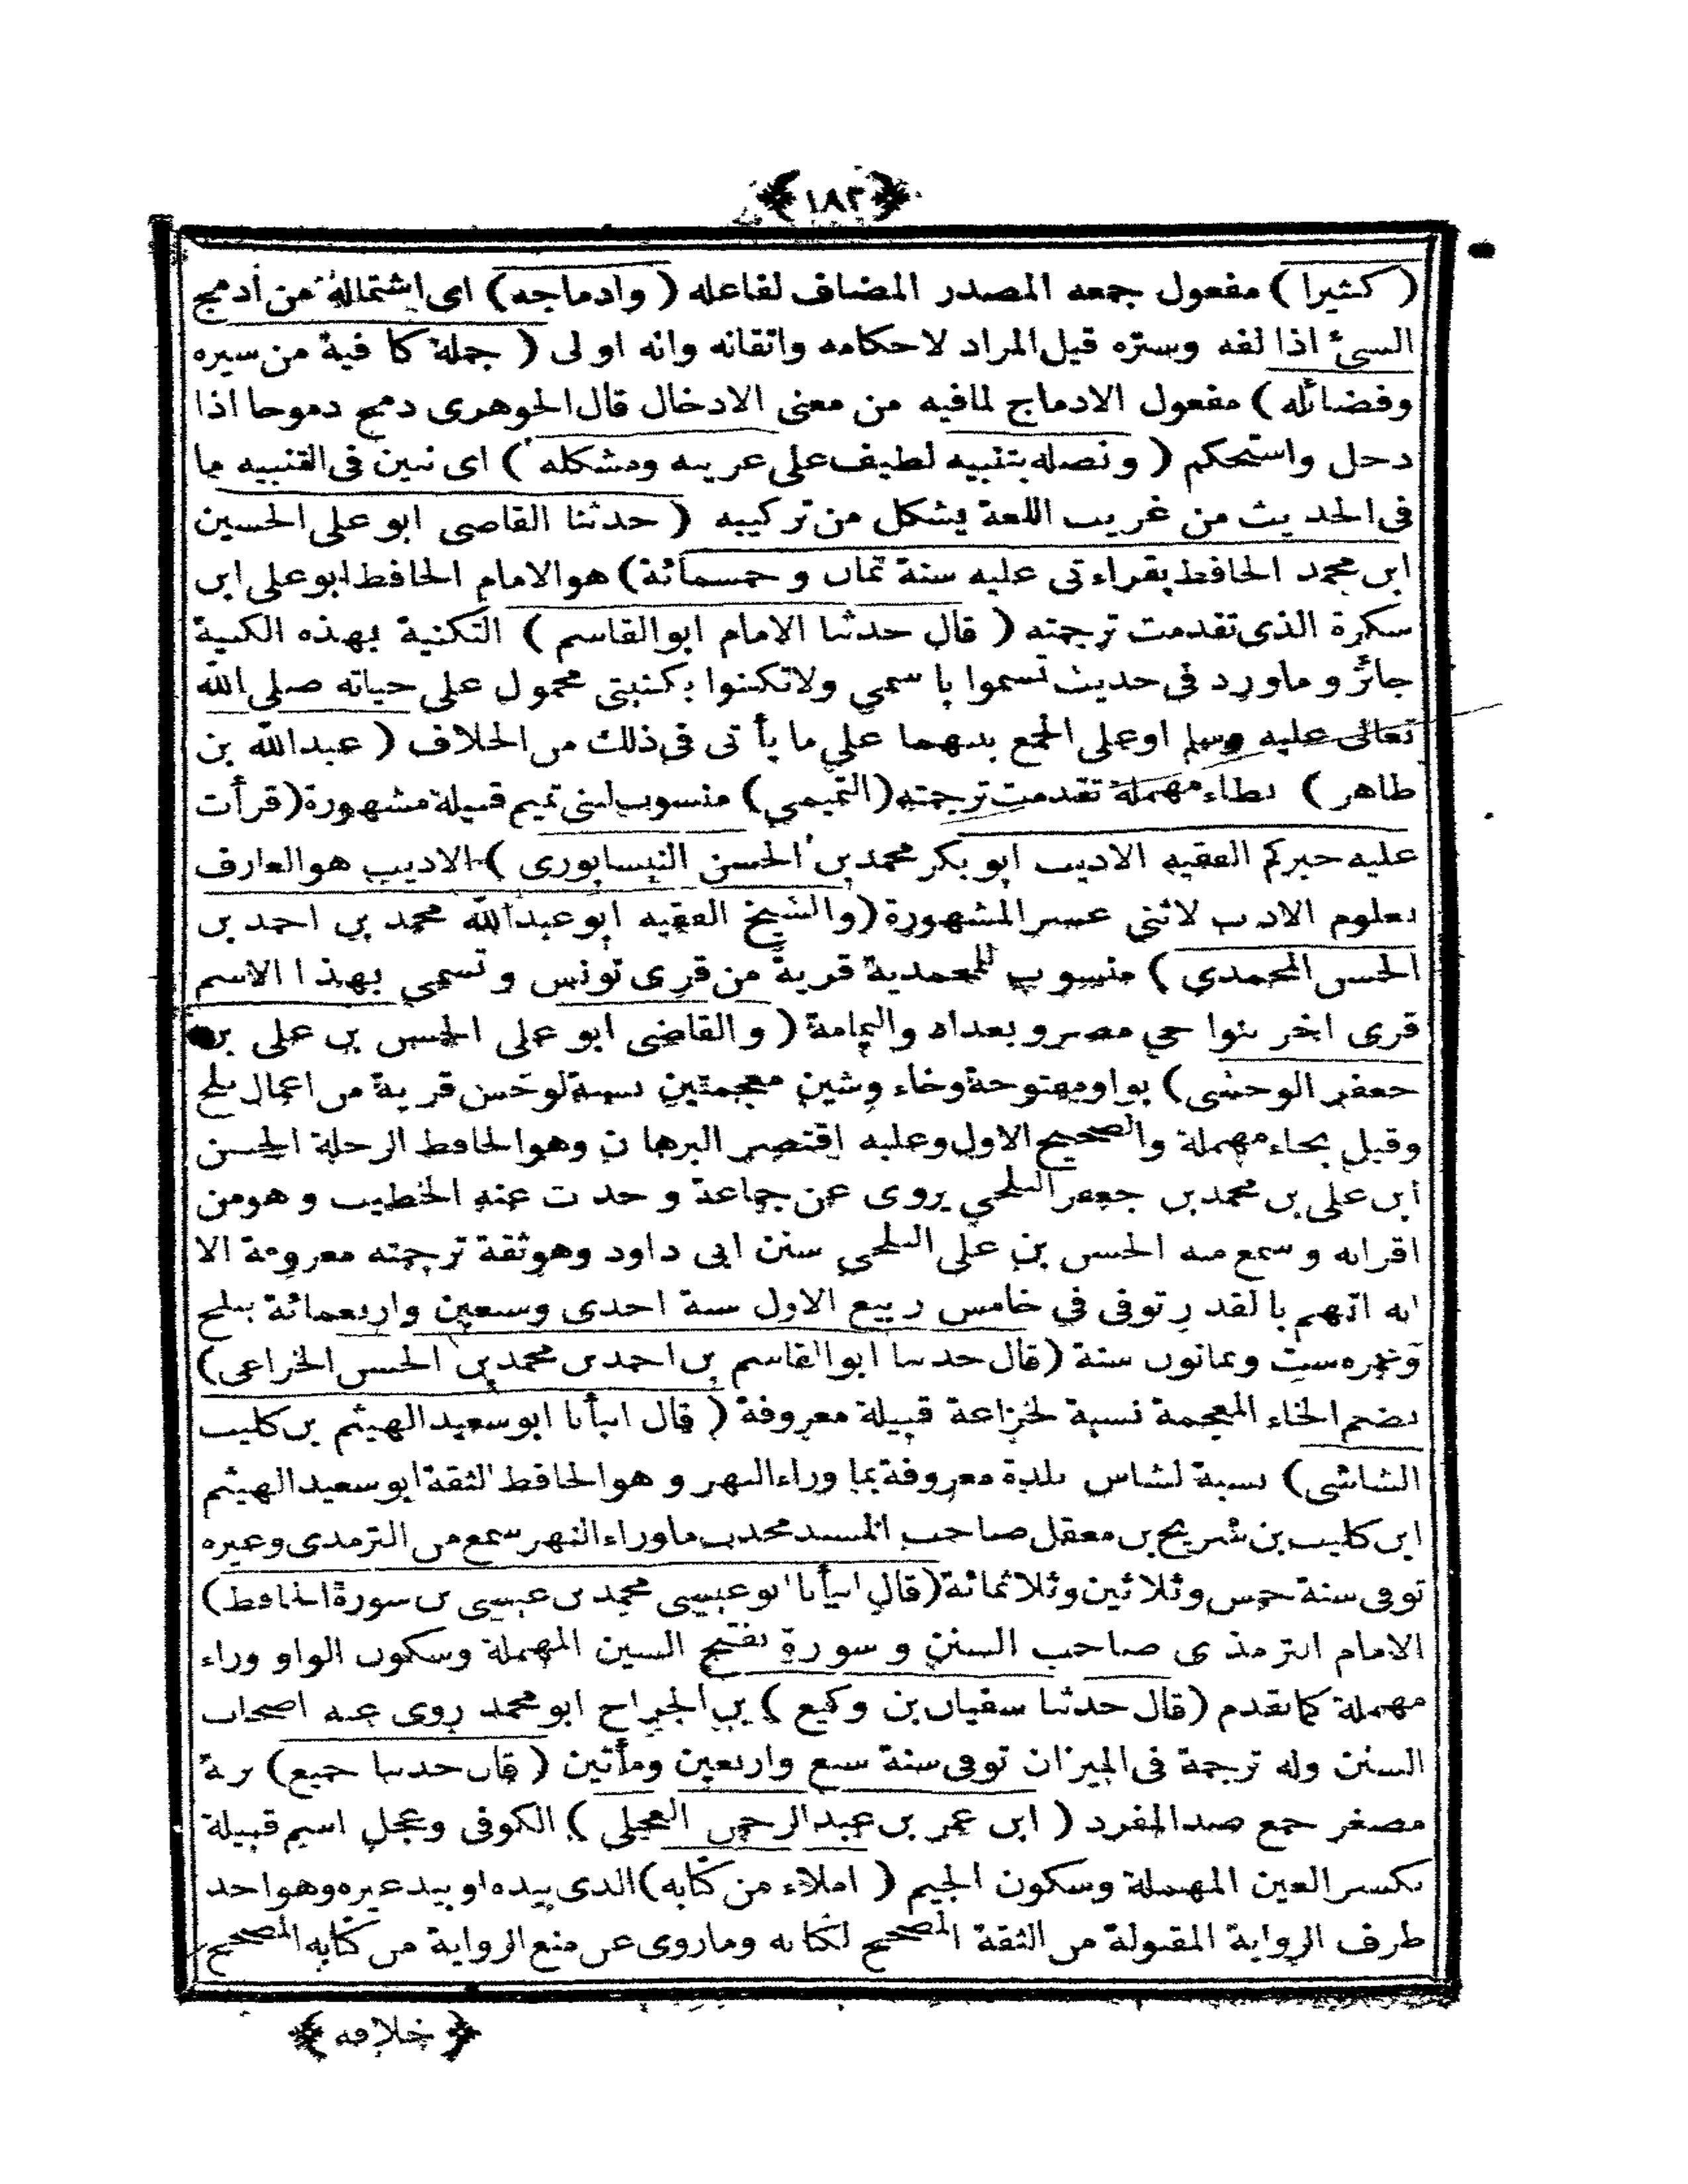 ﴿١٨٢﴾
( كثيرا ) مفعول جمعه المصدر المضاف لفاعله ( وادماجه ) اى اشتماله من أدمج
الشئ اذا لفه وستره قيل المراد لاحكامه واتقانه وانه اولى ( جملة كافية من سيره
وفضائله ) مفعول الادماج لمافيه من معنى الادخال قال الجوهرى دمج دموجا اذا
دخل واستحكم ( ونصله بتنبيه لطيف على غريبه ومشكله ) اى نبين فى التنبيه ما
فى الحديث من غريب اللغة يشكل من تركيبه ( حدثنا القاضى ابو على الحسين
ابن محمد الحافظ بقراءتى عليه سنة ثمان و خمسمائة ) هو الامام الحافظ ابو على ابن
سكرة الذى تقدمت ترجمته ( قال حدثنا الامام ابو القاسم ) التكنية بهذه الكنية
جائز و ماورد فى حديث تسموا باسمى ولاتكنوا بكنيتى محمول على حياته صلى الله
تعالى عليه وسلم او على الجمع بينهما على ما يأتى فى ذلك من الخلاف ( عبدالله بن
طاهر ) بطاء مهملة تقدمت ترجمته ( التميمى ) منسوب لبنى تميم قبيلة مشهورة ( قرأت
عليه خبركم الفقيه الاديب ابو بكر محمد بن الحسن النيسابورى ) الاديب هو العارف
بعلوم الادب لاثنى عشر المشهورة ( والشيخ الفقيه ابو عبدالله محمد بن احمد بن
الحسن المحمدى ) منسوب للمحمدية قرية من قرى تونس وتسمى بهذا الاسم
قرى اخر بنواحى مصر و بغداد واليمامة ( والقاضى ابو على الحسن بن على بن
جعفر الوخشى ) بواو مفتوحة وخاء وشين معجمتين نسبة لوخش قرية من اعمال بلخ
وقيل بحاء مهملة والصحيح الاول وعليه اقتصر البرهان وهو الحافظ الرحلة الحسن
ابن على بن محمد بن جعفر البلخى يروى عن جماعة وحدث عنه الخطيب وهو من
اقرانه وسمع منه الحسن بن على البلخى سنن ابى داود وهو ثقة ترجمته معروفة الا
انه اتهم بالقدر توفى فى خامس ربيع الاول سنة احدى وسبعين واربعمائة ببلخ
وعمره ست وثمانون سنة ( قال حدثنا ابو القاسم بن احمد بن محمد بن الحسن الخزاعى )
بضم الخاء المعجمة نسبة لخزاعة قبيلة معروفة ( قال انبأنا ابو سعيد الهيثم بن كليب
الشاشى ) نسبة لشاش بلدة معروفة بما وراء النهر وهو الحافظ الثقة ابو سعيد الهيثم
ابن كليب بن شريح بن معقل صاحب المسند محدث ماوراء النهر سمع من الترمذى وغيره
توفى سنة خمس وثلاثين وثلاثمائة ( قال انبأنا ابو عيسى محمد بن عيسى بن سورة الحافظ )
الامام الترمذى صاحب السنن وسورة بفتح السين المهملة وسكون الواو وراء
مهملة كما تقدم ( قال حدثنا سفيان بن وكيع ) بن الجراح ابو محمد روى عنه اصحاب
السنن وله ترجمة فى الميزان توفى سنة سبع واربعين ومأتين ( قال حدثنا جميع ) بزنة
مصغر جمع ضد المفرد ( ابن عمر بن عبد الرحمن العجلى ) الكوفى وعجل اسم قبيلة
بكسر العين المهملة وسكون الجيم ( املاء من كتابه ) الذى بيده او بيد غيره وهو احد
طرف الرواية المقبولة من الثقة المصحح لكتابه وماروى عن منع الرواية من كتابه المصحح
﴿ خلافه ﴾